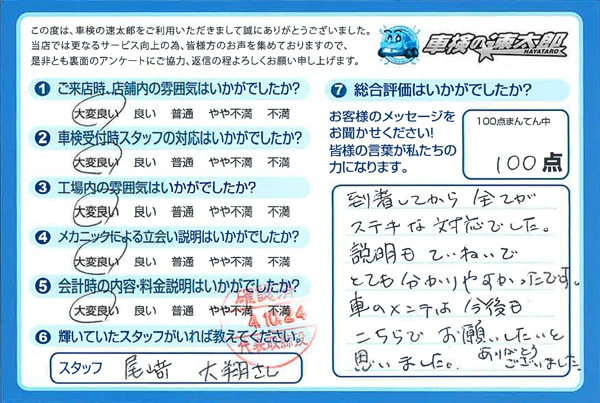 この度は、車検の速太郎をご利用いただきまして誠にありがとうございました。
当店では更なるサービス向上の為、皆様方のお声を集めておりますので、
是非とも裏面のアンケートにご協力、返信の程よろしくお願い申し上げます。
車検の速太郎
HAYATARO
1 ご来店時、店舗内の雰囲気はいかがでしたか?
大変良い 良い 普通 やや不満 不満
2 車検受付時スタッフの対応はいかがでしたか?
大変良い 良い 普通 やや不満 不満
3 工場内の雰囲気はいかがでしたか?
大変良い 良い 普通 やや不満 不満
4 メカニックによる立会い説明はいかがでしたか?
大変良い 良い 普通 やや不満 不満
5 会計時の内容・料金説明はいかがでしたか?
大変良い 良い 普通 やや不満 不満
6 輝いていたスタッフがいれば教えてください。
スタッフ 尾﨑 大翔さん
確認済
4.10.24
代表取締役
7 総合評価はいかがでしたか?
お客様のメッセージを
お聞かせください!
皆様の言葉が私たちの
力になります。
100点まんてん中
100点
到着してから 全てが
ステキな対応でした。
説明も ていねいで
とても分かりやすかったです。
車のメンテは 今後も
こちらで お願いしたいと
思いました。ありがとう
ございました。